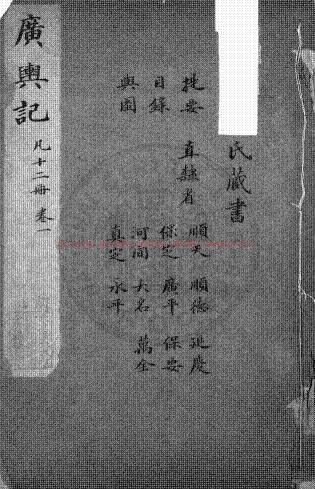 廣輿記 凡十二冊 卷一
氏藏書
提要 直隸省
目錄
輿圖
順天 順德 延慶
保定 廣平 保安
河間 大名 萬全
真定 永平